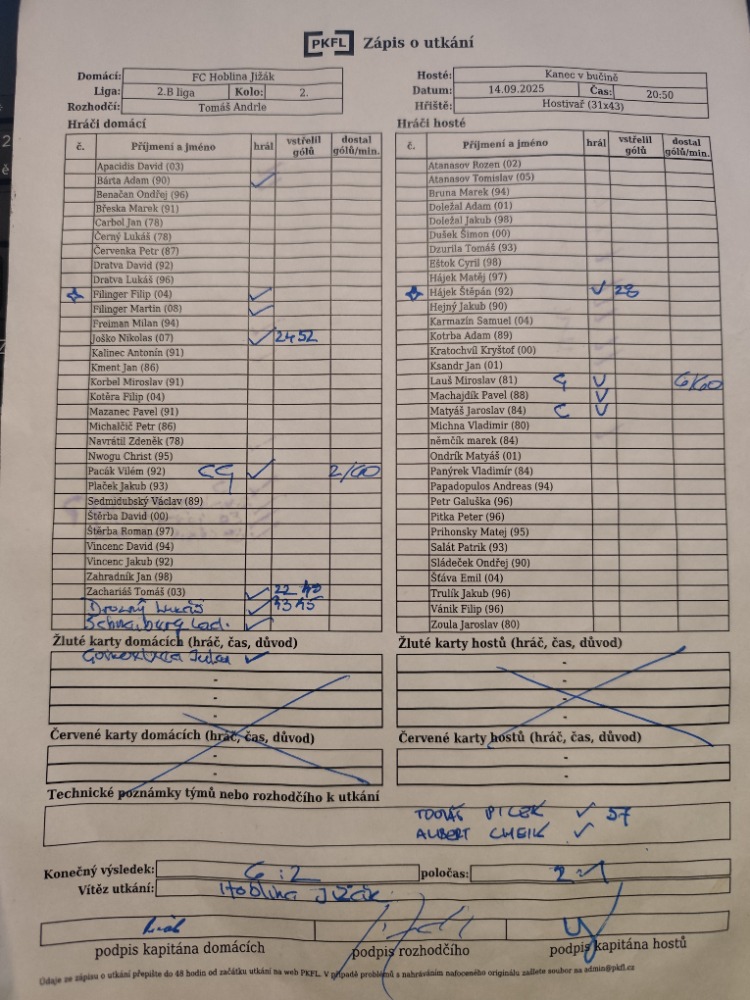 PKFL Zápis o utkání
Domácí: FC Hoblina Jižák
Liga: 2.B liga Kolo: 2.
Rozhodčí: Tomáš Andrle
Hosté: Kanec v bučině
Datum: 14.09.2025 Čas: 20:50
Hřiště: Hostivař (31x43)
Hráči domácí
č. Příjmení a jméno hrál vstřelil gólů dostal gólů/min.
Apacidis David (03)
Bárta Adam (90) ✓
Benačan Ondřej (96)
Břeska Marek (91)
Carbol Jan (78)
Černý Lukáš (78)
Červenka Petr (87)
Dratva David (92)
Dratva Lukáš (96)
Filinger Filip (04) ✓
Filinger Martin (08) ✓
Freiman Milan (94)
Joško Nikolas (07) ✓ 24 52
Kalinec Antonín (91)
Kment Jan (86)
Korbel Miroslav (91)
Kotěra Filip (04)
Mazanec Pavel (91)
Michalčič Petr (86)
Navrátil Zdeněk (78)
Nwogu Christ (95)
Pacák Vilém (92) CG ✓ 2/60
Plaček Jakub (93)
Sedmidubský Václav (89)
Štěrba David (00)
Štěrba Roman (97)
Vincenc David (94)
Vincenc Jakub (92)
Zahradník Jan (98)
Zachariáš Tomáš (03) ✓ 22
Lukáš ✓
Lad. ✓
Hráči hosté
č. Příjmení a jméno hrál vstřelil gólů dostal gólů/min.
Atanasov Rozen (02)
Atanasov Tomislav (05)
Bruna Marek (94)
Doležal Adam (01)
Doležal Jakub (98)
Dušek Šimon (00)
Dzurila Tomáš (93)
Eštok Cyril (98)
Hájek Matěj (97)
Hájek Štěpán (92) ✓ 28
Hejný Jakub (90)
Karmazín Samuel (04)
Kotrba Adam (89)
Kratochvíl Kryštof (00)
Ksandr Jan (01)
Lauš Miroslav (81) G ✓ 6/60
Machajdík Pavel (88) ✓
Matyáš Jaroslav (84) C ✓
Michna Vladimír (80)
němčík marek (84)
Ondrík Matyáš (01)
Panýrek Vladimír (84)
Papadopulos Andreas (94)
Petr Galuška (96)
Pitka Peter (96)
Prihonsky Matej (95)
Salát Patrik (93)
Sládeček Ondřej (90)
Šťáva Emil (04)
Trulík Jakub (96)
Váník Filip (96)
Zoula Jaroslav (80)
Žluté karty domácích (hráč, čas, důvod)
✓
-
-
-
Žluté karty hostů (hráč, čas, důvod)
-
-
-
-
Červené karty domácích (hráč, čas, důvod)
-
-
Červené karty hostů (hráč, čas, důvod)
-
-
Technické poznámky týmů nebo rozhodčího k utkání
TOMÁŠ PILEK ✓ 57
ALBERT CHEIK ✓
Konečný výsledek: 6:2 poločas: 2:1
Vítěz utkání: Hoblina Jižák
podpis kapitána domácích podpis rozhodčího podpis kapitána hostů
Údaje ze zápisu o utkání přepište do 48 hodin od začátku utkání na web PKFL. V případě problémů s nahráváním nafoceného originálu zašlete soubor na admin@pkfl.cz